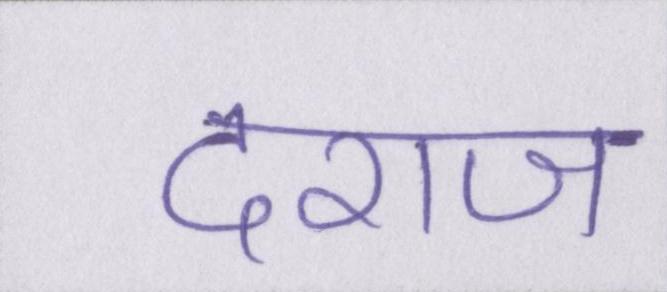 दराज